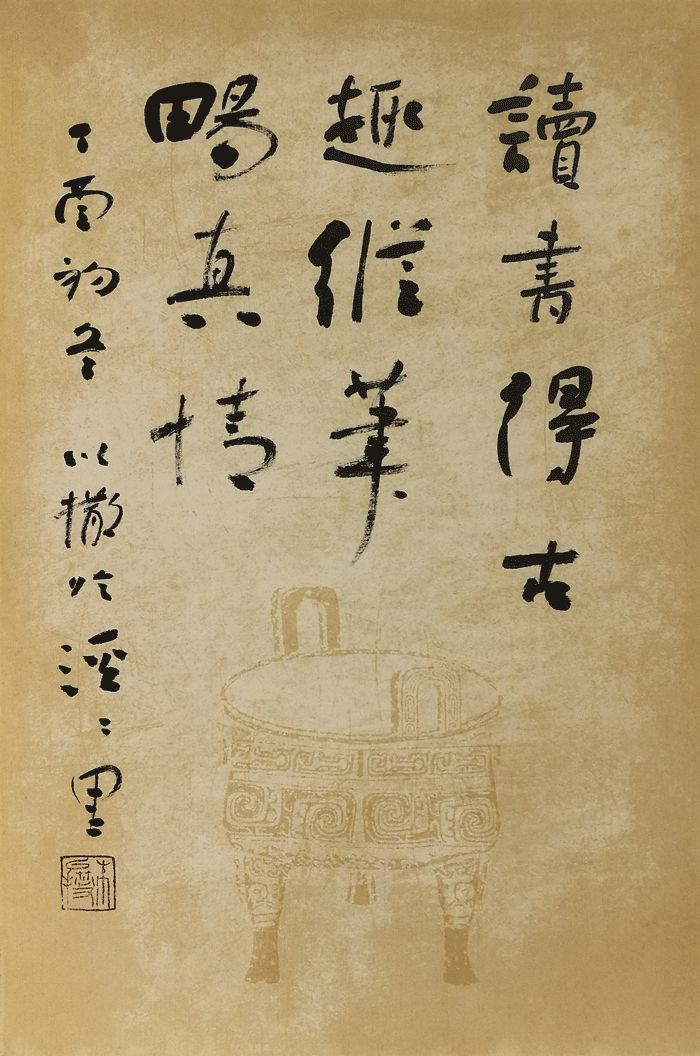 讀書得古
趣縱筆
畼真情
丁酉初冬 以撒於溪里